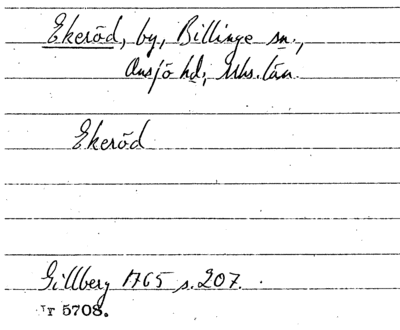 Ekeröd, by, Billinge sn.,
Onsjö hd, Mhs. län
Ekeröd
Gillberg 1765 s. 207.
Nr 5708.